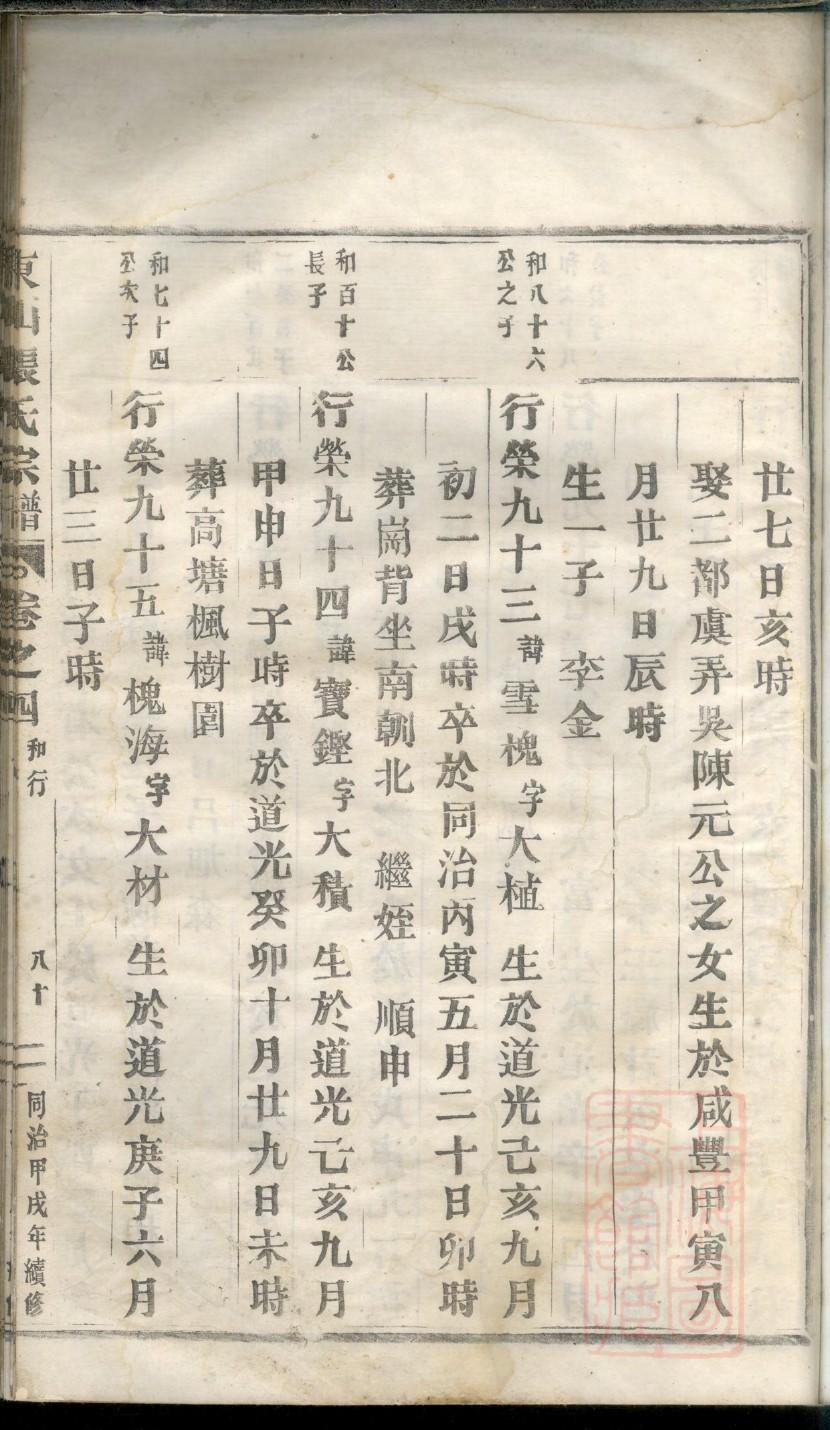 廿七日亥時
娶二都虞弄吳陳元公之女生於咸豐甲寅八
月廿九日辰時
生一子 李金
和八十六
公之子
行榮九十三諱雪槐字大植 生於道光己亥九月
初二日戌時卒於同治丙寅五月二十日卯時
葬崗背坐南朝北 繼姪 順申
和百十公
長子
行榮九十四諱寶鏗字大積 生於道光己亥九月
甲申日子時卒於道光癸卯十月廿九日未時
葬高塘楓樹園
和七十四
公次子
行榮九十五諱槐海字大材 生於道光庚子六月
廿三日子時
東山張氏宗譜 卷之四 和行 八十二 同治甲戌年續修